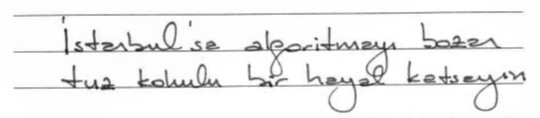 İstanbul'sa algoritmayı bozan
tuz kokulu bir hayal katsayın